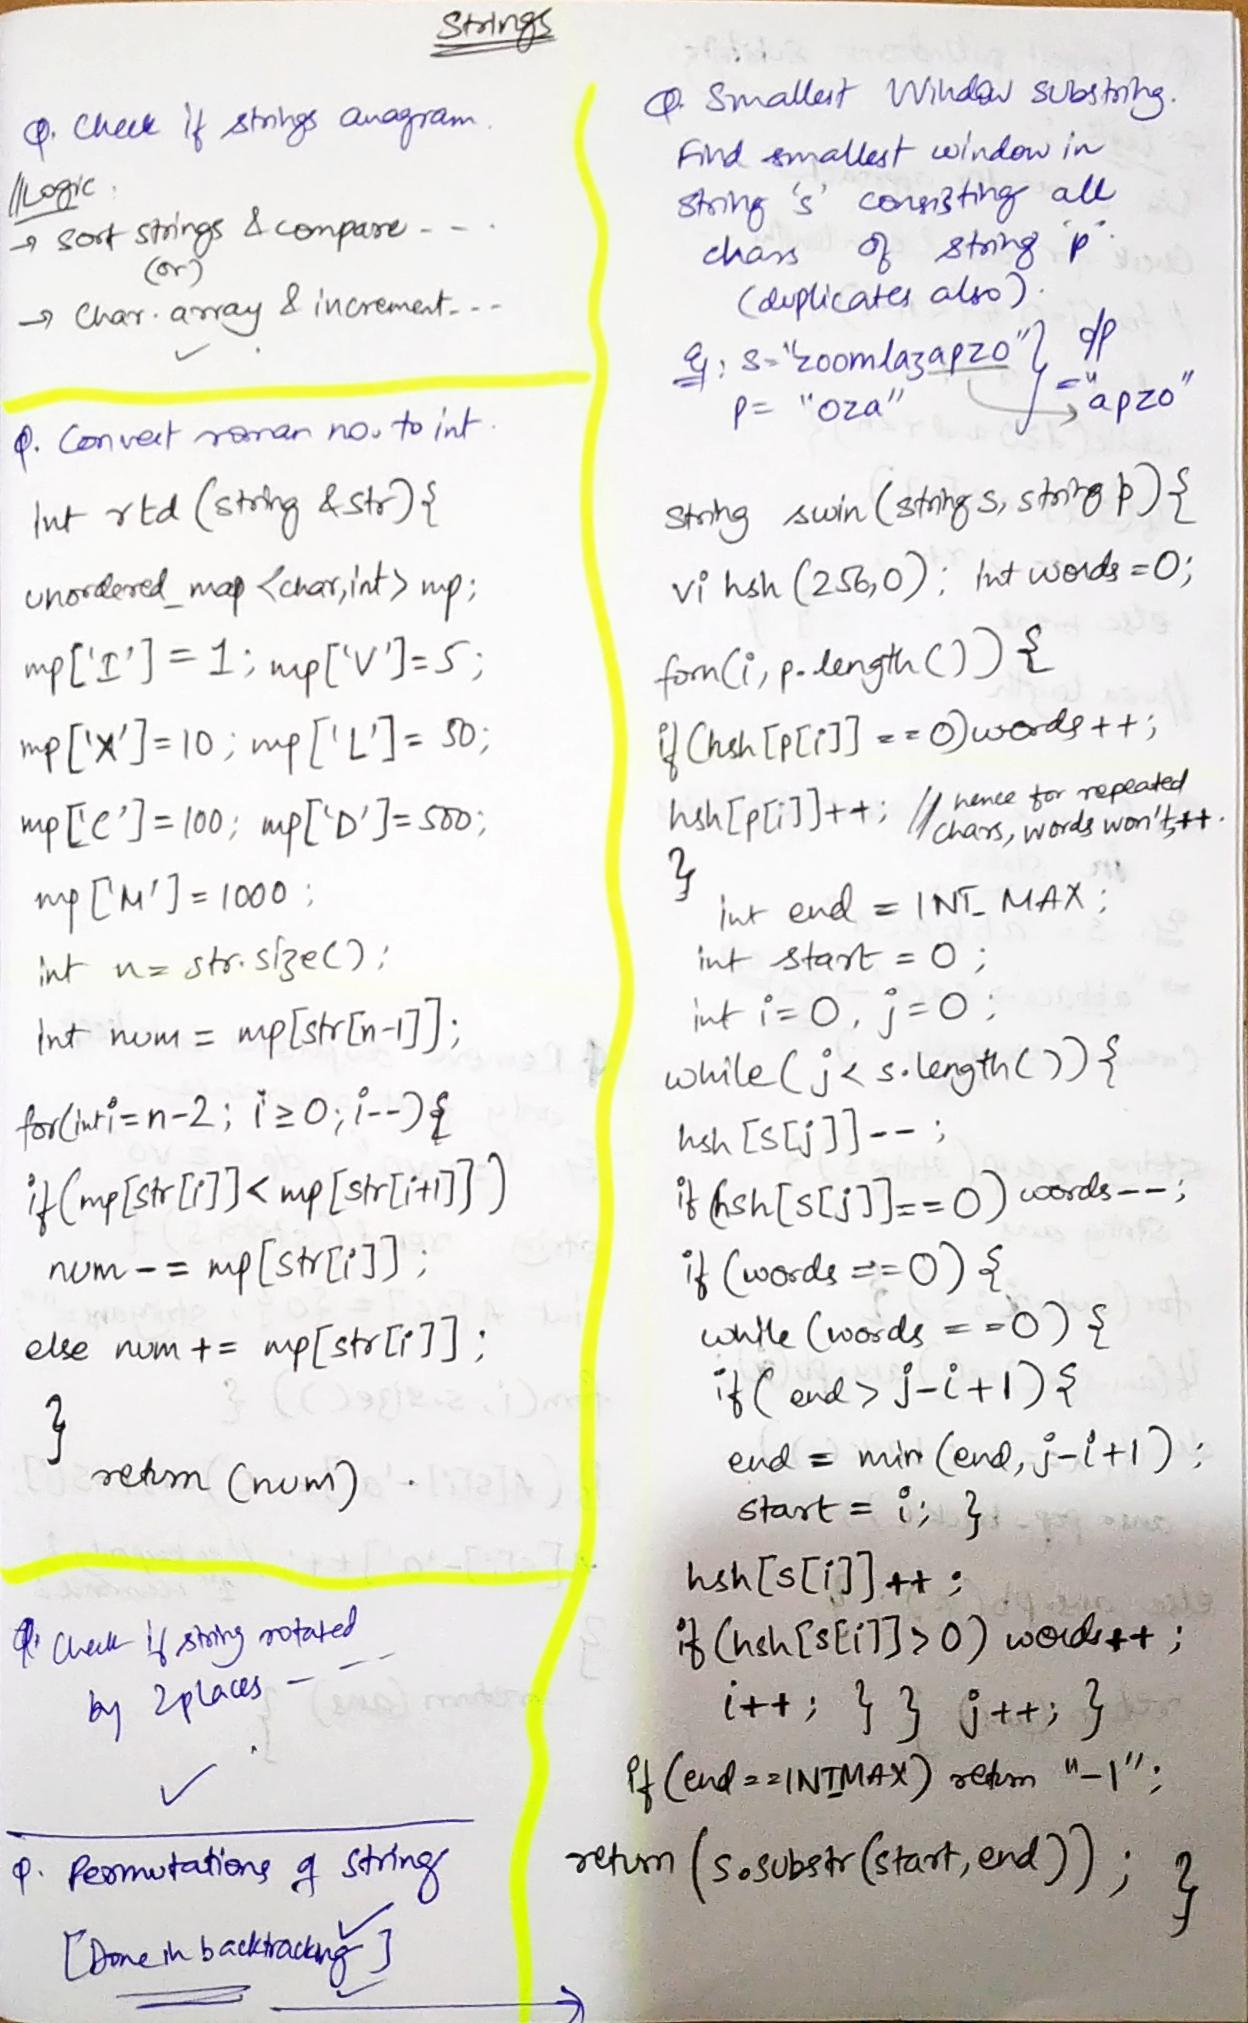 Strings
Q. Check if strings anagram.
//Logic:
→ Sort strings & compare - - .
(or)
→ Char. array & increment - - -
Q. Convert roman no. to int.
Int rtd (string &str) {
unordered_map <char,int> mp;
mp['I'] = 1; mp['V']=5;
mp['X']=10; mp['L']= 50;
mp['C']=100; mp['D']=500;
mp['M']=1000;
int n= str.size();
Int num = mp[str[n-1]];
for(int i=n-2; i≥0; i--){
if(mp[str[i]]< mp[str[i+1]])
num -= mp[str[i]];
else num += mp[str[i]];
}
return (num) .
Q. Check if string rotated
by 2 places - - -
✓
Q. Permutations of string
[Done in backtracking]
Q. Smallest Window substring.
Find smallest window in
string 's' consisting all
chars of string 'p'.
(duplicates also).
Eg: s="zoomlazapzo" } o/p
p= "oza" } = "apzo"
string swin (string s, string p) {
vi hsh (256,0); Int words =0;
forn(i, p.length()) {
if (hsh[p[i]] ==0) words++;
hsh[p[i]]++; // hence for repeated
chars, words won't ++.
}
int end = INT_MAX;
int start = 0;
int i=0, j=0;
while (j< s.length()) {
hsh [s[j]]--;
if (hsh[s[j]]==0) words--;
if (words ==0) {
while (words ==0) {
if( end> j-i+1) {
end = min (end, j-i+1);
start = i; }
hsh[s[i]]++;
if (hsh[s[i]]>0) words++;
i++; } } j++; }
if (end ==INTMAX) return "-1";
return (s.substr(start, end)); }